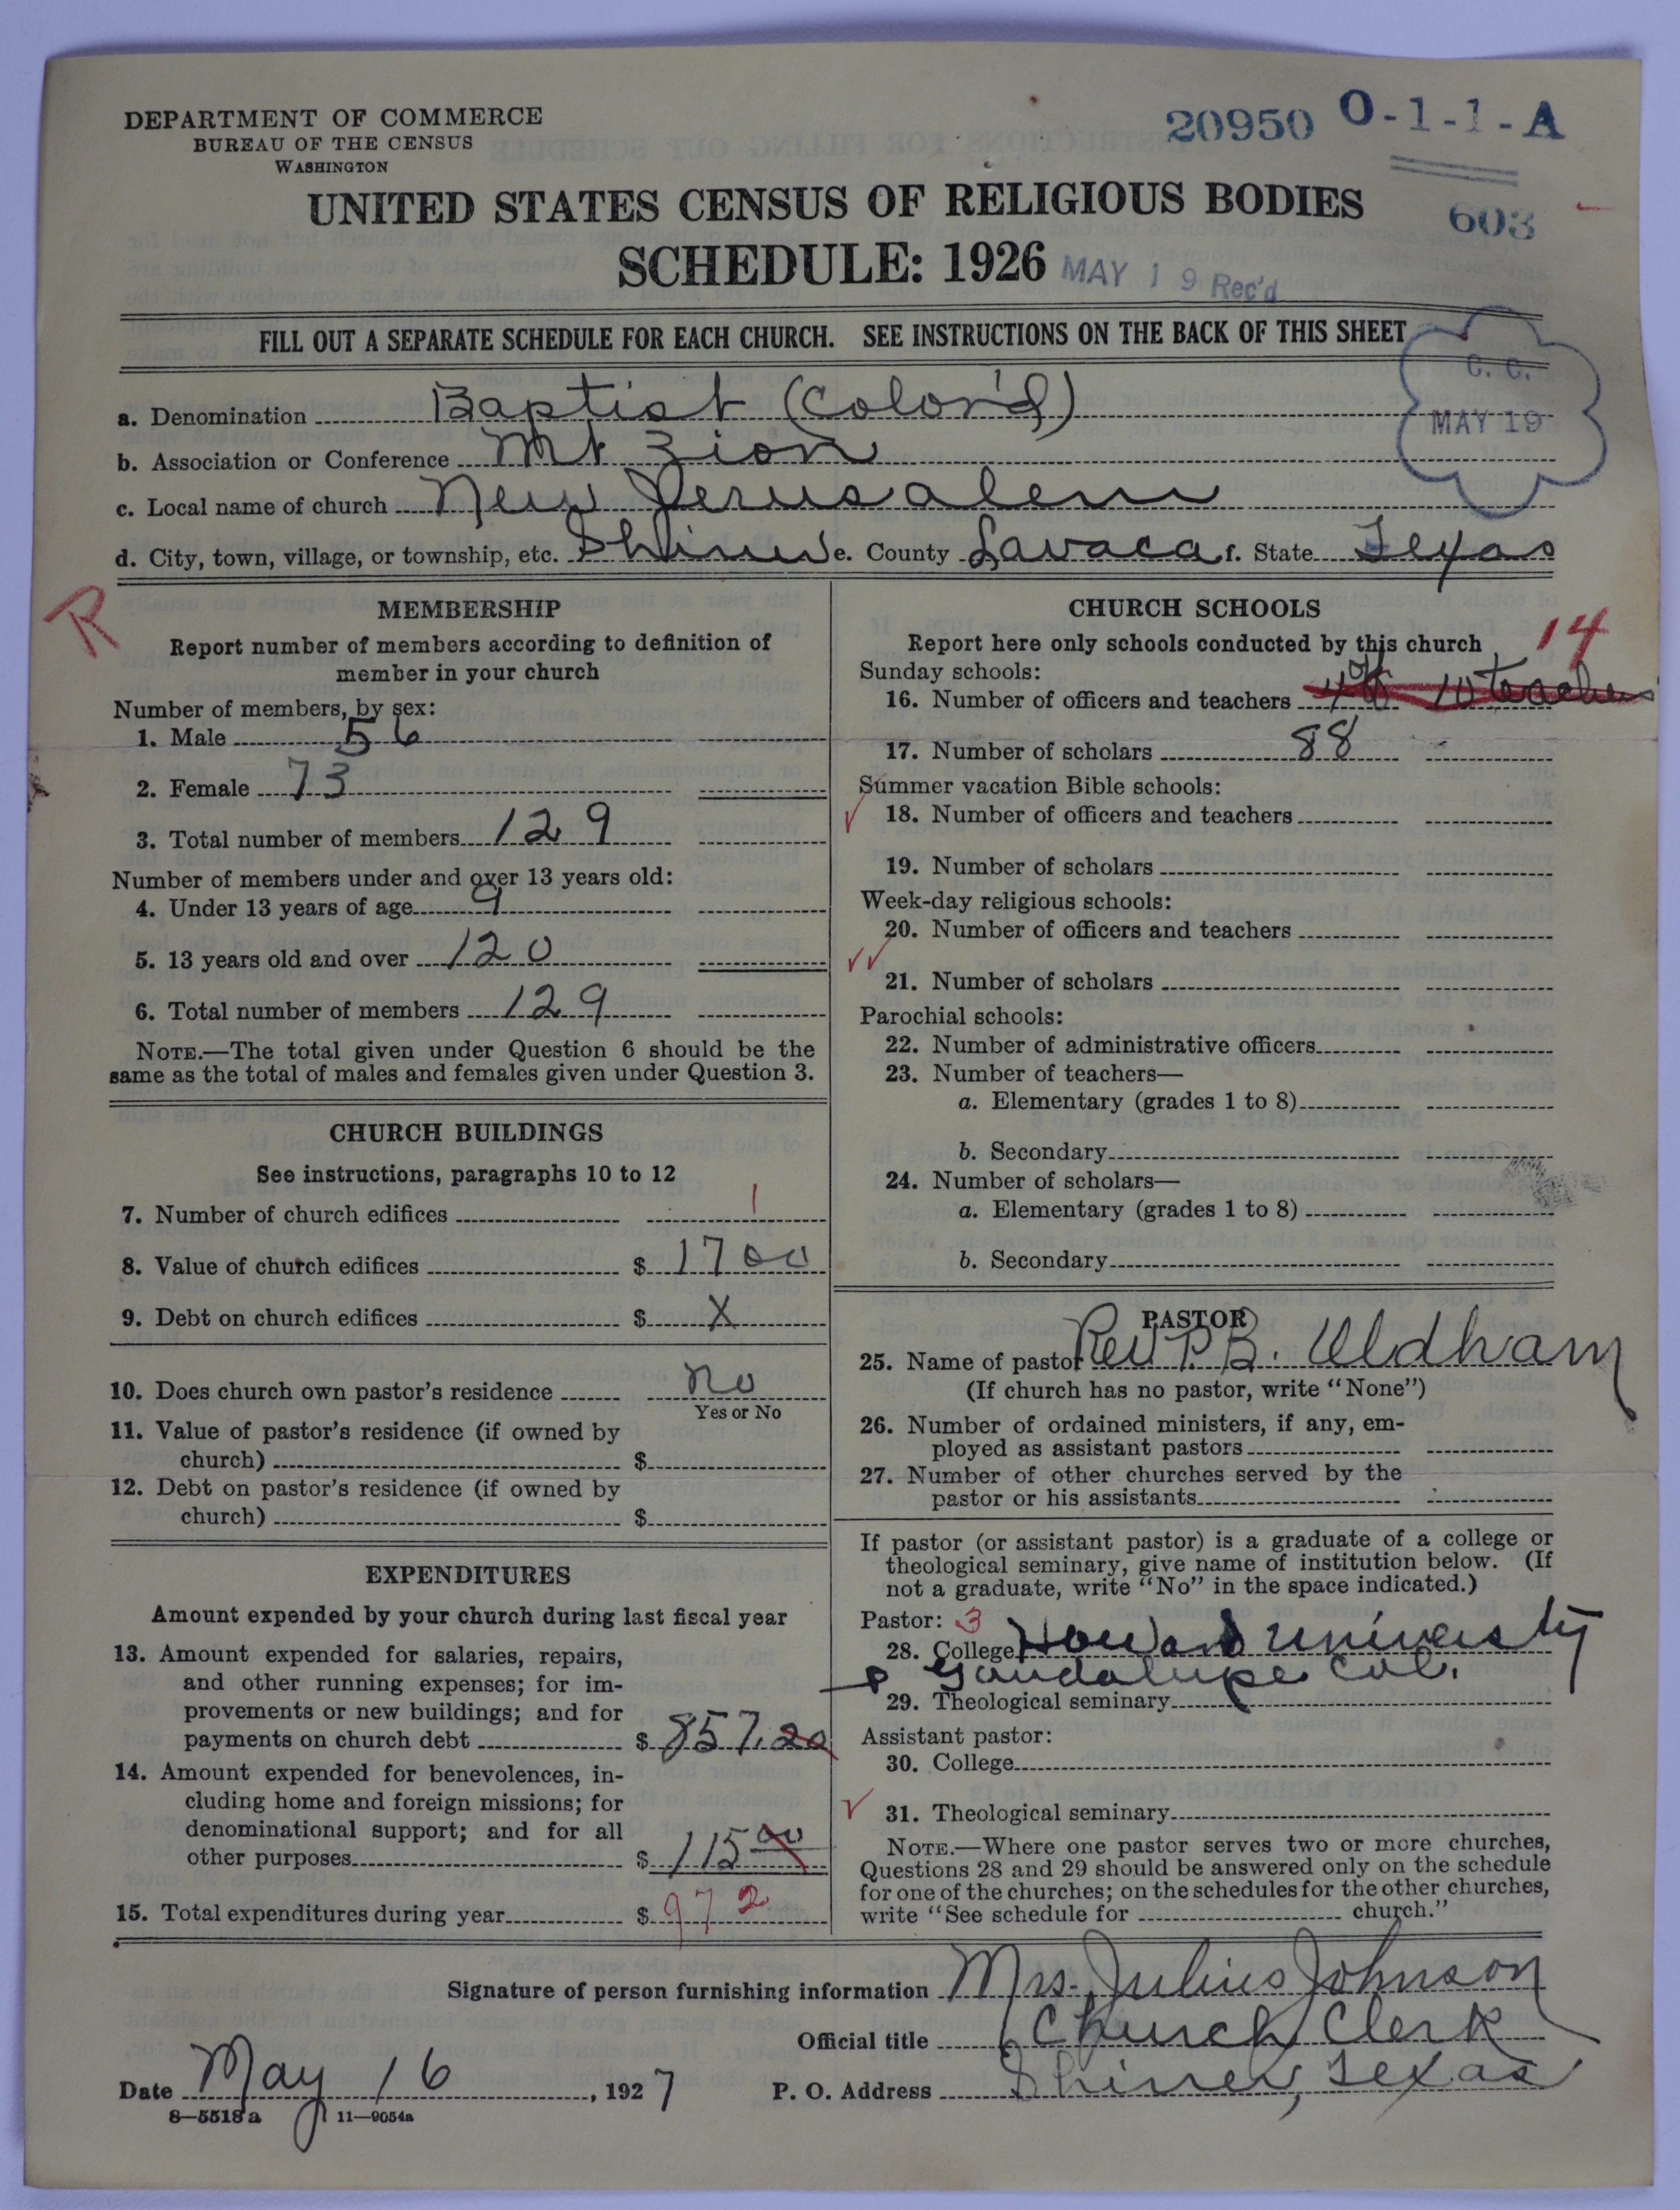 DEPARTMENT OF COMMERCE
BUREAU OF THE CENSUS
WASHINGTON
20950 O-1-1-A
UNITED STATES CENSUS OF RELIGIOUS BODIES
603
SCHEDULE: 1926
MAY 19 Rec'd
FILL OUT A SEPARATE SCHEDULE FOR EACH CHURCH. SEE INSTRUCTIONS ON THE BACK OF THIS SHEET
C. C.
MAY 19
a. Denomination Baptist (Color'd)
b. Association or Conference Mt Zion
c. Local name of church New Jerusalem
d. City, town, village, or township, etc. Shiner e. County Lavaca f. State Texas
R
MEMBERSHIP
Report number of members according to definition of
member in your church
Number of members, by sex:
1. Male 56
2. Female 73
3. Total number of members 129
Number of members under and over 13 years old:
4. Under 13 years of age 9
5. 13 years old and over 120
6. Total number of members 129
NOTE.—The total given under Question 6 should be the
same as the total of males and females given under Question 3.
CHURCH BUILDINGS
See instructions, paragraphs 10 to 12
7. Number of church edifices 1
8. Value of church edifices $ 1700
9. Debt on church edifices $ X
10. Does church own pastor's residence No
Yes or No
11. Value of pastor's residence (if owned by
church) $
12. Debt on pastor's residence (if owned by
church) $
EXPENDITURES
Amount expended by your church during last fiscal year
13. Amount expended for salaries, repairs,
and other running expenses; for im-
provements or new buildings; and for
payments on church debt $ 857.20
14. Amount expended for benevolences, in-
cluding home and foreign missions; for
denominational support; and for all
other purposes $ 115 00
15. Total expenditures during year $ 972
CHURCH SCHOOLS
Report here only schools conducted by this church
14
Sunday schools:
16. Number of officers and teachers 4 10 teachers
17. Number of scholars 88
Summer vacation Bible schools:
18. Number of officers and teachers
19. Number of scholars
Week-day religious schools:
20. Number of officers and teachers
21. Number of scholars
Parochial schools:
22. Number of administrative officers
23. Number of teachers—
a. Elementary (grades 1 to 8)
b. Secondary
24. Number of scholars—
a. Elementary (grades 1 to 8)
b. Secondary
PASTOR
25. Name of pastor Rev P. B. Oldham
(If church has no pastor, write "None")
26. Number of ordained ministers, if any, em-
ployed as assistant pastors
27. Number of other churches served by the
pastor or his assistants
If pastor (or assistant pastor) is a graduate of a college or
theological seminary, give name of institution below. (If
not a graduate, write "No" in the space indicated.)
Pastor: 3
28. College Howard University
Gaudalupe Col.
29. Theological seminary
Assistant pastor:
30. College
31. Theological seminary
NOTE.—Where one pastor serves two or more churches,
Questions 28 and 29 should be answered only on the schedule
for one of the churches; on the schedules for the other churches,
write "See schedule for church."
Signature of person furnishing information Mrs. Julius Johnson
Official title Church Clerk
Date May 16, 1927
P. O. Address Shiner, Texas
8—5518 a 11—9054a